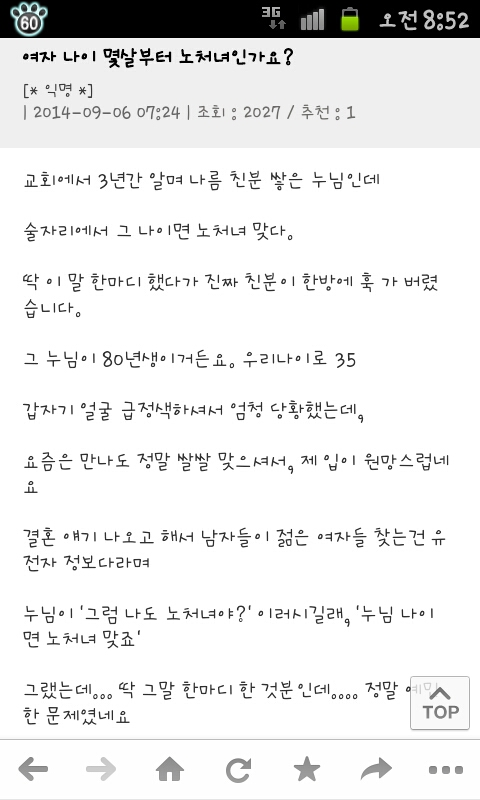 60
3G
오전 8:52
여자 나이 몇살부터 노처녀인가요?
[* 익명 *]
| 2014-09-06 07:24 | 조회 : 2027 / 추천 : 1
교회에서 3년간 알며 나름 친분 쌓은 누님인데
술자리에서 그 나이면 노처녀 맞다.
딱 이 말 한마디 했다가 진짜 친분이 한방에 훅 가 버렸
습니다.
그 누님이 80년생이거든요. 우리나이로 35
갑자기 얼굴 급정색하셔서 엄청 당황했는데,
요즘은 만나도 정말 쌀쌀 맞으셔서, 제 입이 원망스럽네
요
결혼 얘기 나오고 해서 남자들이 젊은 여자들 찾는건 유
전자 정보다라며
누님이 '그럼 나도 노처녀야?' 이러시길래, '누님 나이
면 노처녀 맞죠'
그랬는데... 딱 그말 한마디 한 것분인데.... 정말 예민
한 문제였네요
TOP